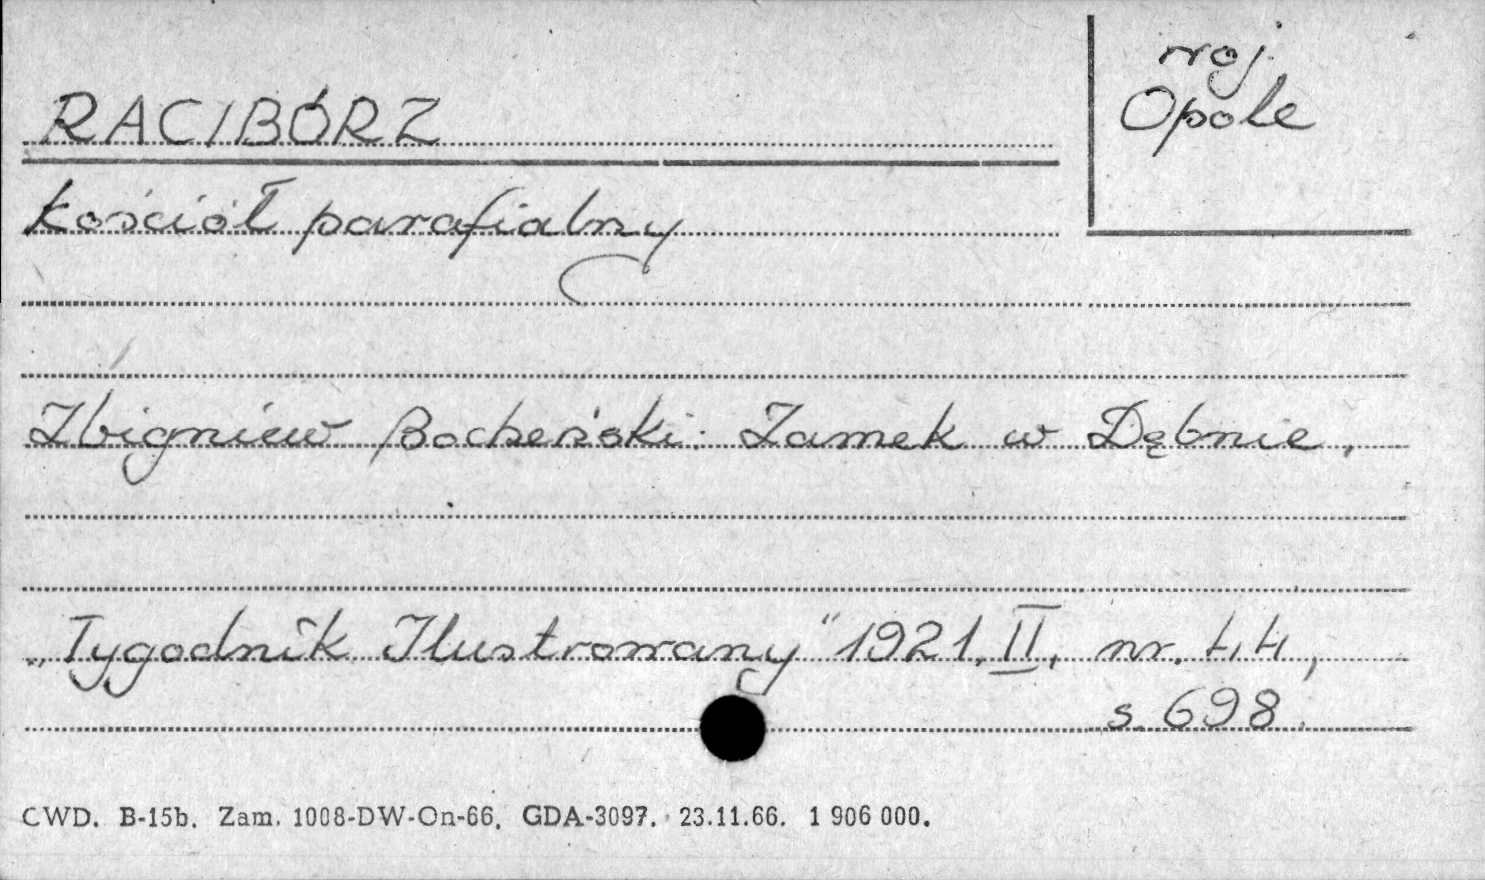 RACIBÓRZ
woj.
Opole
Kościół parafialny
Zbigniew Bocheński: Zamek w Dębnie,
„Tygodnik Ilustrowany" 1921. II. nr. 44,
s. 698.
CWD. B-15b. Zam. 1008-DW-On-66. GDA-3097. 23.11.66. 1 906 000.